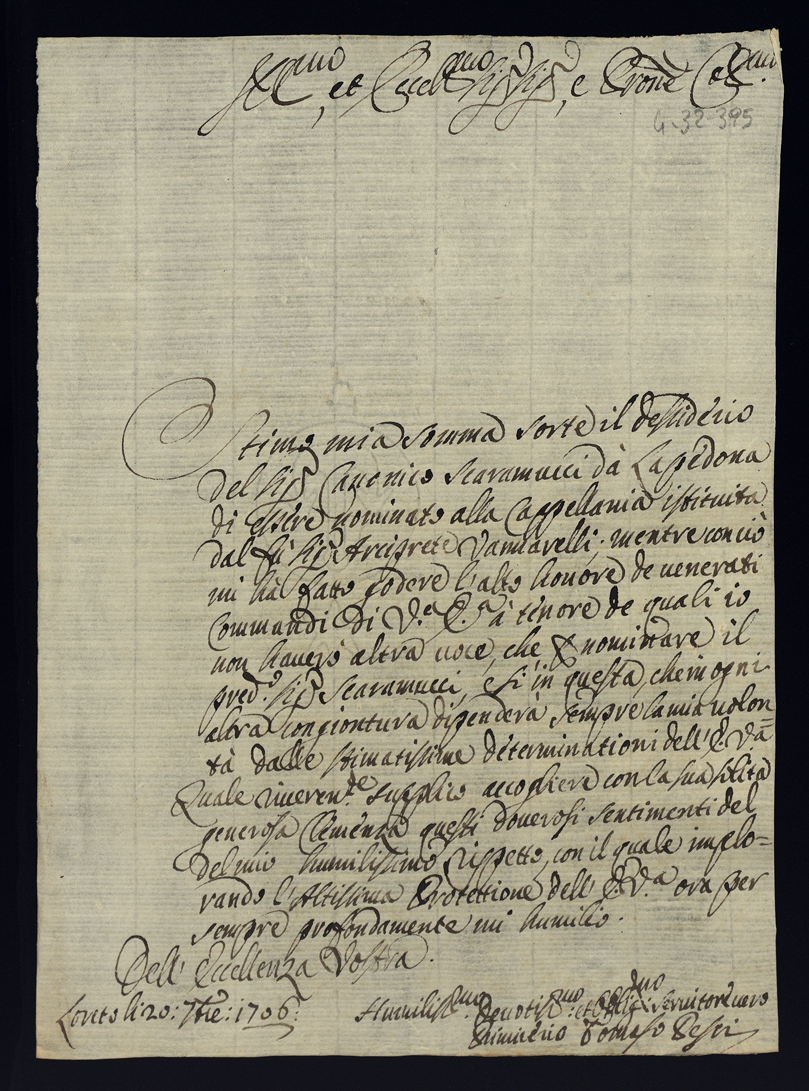 Ill.mo, et Eccel.mo Sig.r Sig.r, e Prone Col.mo
G-32-395
Stimo mia somma sorte il desiderio
del Sig.r Canonico Scaramucci da Lapedona
di essere nominato alla Cappellania istituita
dal fù Sig.r Arciprete Vannarelli; mentre con ciò
mi hà fatto godere l'alto honore de venerati
Commandi di V.a E.a à tenore de quali io
non haverò altra voce, che p nominare il
pred.o Sig.r Scaramucci, e si in questa, che in ogni
altra congiontura dipenderà sempre la mia volon=
tà dalle stimatissime determinationi dell'E. V.a
Quale riveren.te supplico accogliere con la sua solita
generosa Clemenza questi doverosi sentimenti del
del mio humilissimo rispetto, con il quale implo=
rando l'Altissima Protettione dell'E. V.a ora per
sempre profondamente mi humilio.
Dell'Eccellenza Vostra.
Loreto li 20: 7bre: 1706.
Humiliss.mo Devotiss.mo et Oblig.mo Servitore vero
Tomaso